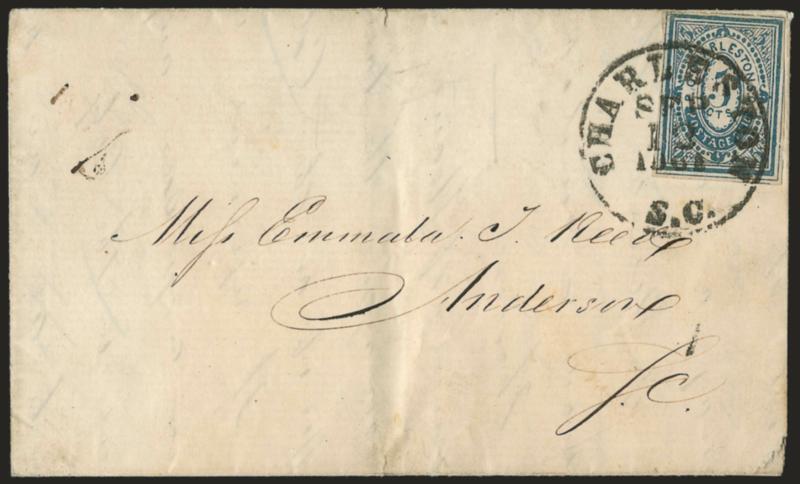 CHARLESTON
5
CTS
POSTAGE
CHARLESTON
SEP
1861
S.C.
Miss Emmala. T. Reed
Anderson
S.C.